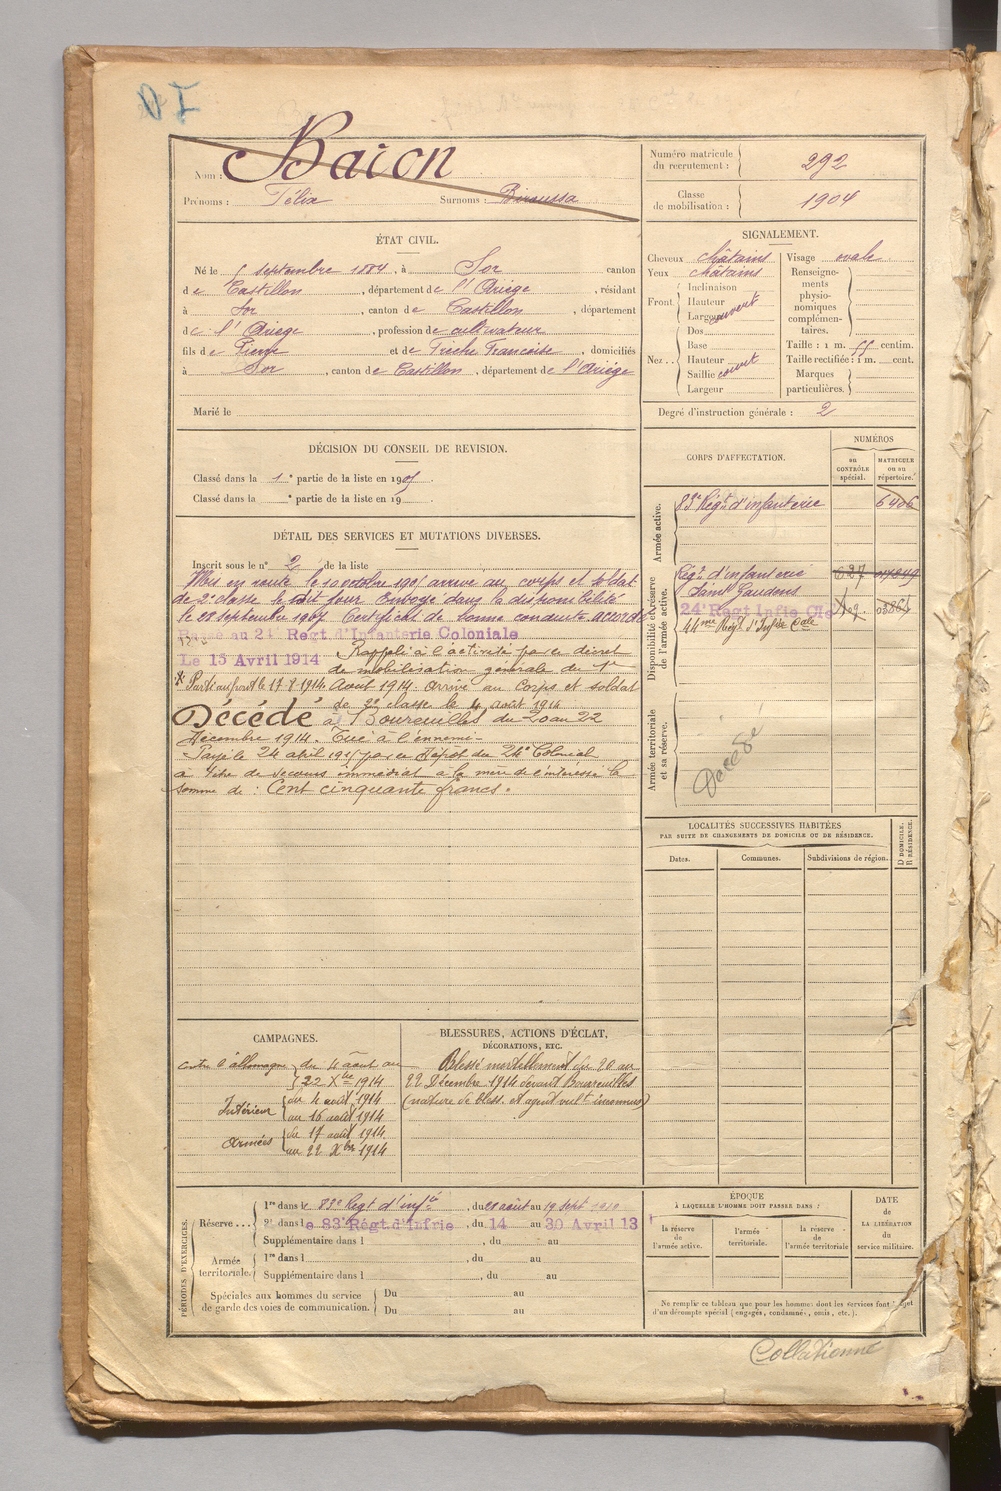 Nom : Bacon
Prénoms : Félix Surnoms : Biroussa
Numéro matricule du recrutement : 292
Classe de mobilisation : 1904
ÉTAT CIVIL.
Né le 5 septembre 1884, à Sor canton
de Castillon, département de l'Ariège, résidant
à Sor, canton de Castillon, département
de l'Ariège, profession de cultivateur
fils de Pierre et de Françoise, domiciliés
à Sor, canton de Castillon, département de l'Ariège
Marié le
SIGNALEMENT.
Cheveux châtains Visage ovale
Yeux châtains
Front Inclinaison
Hauteur
Largeur couvert
Nez Dos
Base
Hauteur
Saillie
Largeur
Renseignements physionomiques complémentaires.
Taille : 1 m. 55 centim.
Taille rectifiée : 1 m. cent.
Marques particulières.
Degré d'instruction générale : 2
DÉCISION DU CONSEIL DE REVISION.
Classé dans la 1e partie de la liste en 1905.
Classé dans la e partie de la liste en 19 .
DÉTAIL DES SERVICES ET MUTATIONS DIVERSES.
Inscrit sous le n° 2 de la liste
Mis en route le 10 octobre 1905 arrivé au corps et soldat
de 2e classe le dit jour Envoyé dans la disponibilité
le 28 septembre 1907 Certificat de bonne conduite accordé
Passé au 24e Regt. d'Infanterie Coloniale
Le 15 Avril 1914
Rappelé à l'activité par ce décret
de mobilisation générale du 1er
* Parti au front le 17-8-1914
Août 1914. Arrivé au Corps et soldat
de 2e classe le 4 août 1914
Décédé à Boureuilles du 20 au 22
Décembre 1914. Tué à l'ennemi -
Payé le 24 avril 1915 par ce Dépôt du 24e Colonial
à titre de secours immédiat à la mère de l'intéressé la
somme de : Cent cinquante francs.
CORPS D'AFFECTATION.
NUMÉROS
au CONTRÔLE spécial.
MATRICULE ou au répertoire.
Armée active.
83e Régt d'infanterie 6406
Disponibilité et réserve de l'armée active.
Régt d'infanterie
Saint Gaudens
24e Régt Infie Cle
44me Régt d'Infie Cale
Armée territoriale et sa réserve.
Décédé
LOCALITÉS SUCCESSIVES HABITÉES
PAR SUITE DE CHANGEMENTS DE DOMICILE OU DE RÉSIDENCE.
Dates. Communes. Subdivisions de région.
D DOMICILE. R RÉSIDENCE.
CAMPAGNES.
Contre l'allemagne du 4 août au
22 Xbre 1914
Intérieur du 4 août 1914
au 16 août 1914
Armées du 17 août 1914
au 22 Xbre 1914
BLESSURES, ACTIONS D'ÉCLAT,
DÉCORATIONS, ETC.
Blessé mortellement du 20 au
22 Décembre 1914 devant Boureuilles
(nature de bless. et agent vult inconnus)
PÉRIODES D'EXERCICES.
Réserve... 1re dans le 83e Regt d'infie, du 28 août au 19 sept 1910
2e dans le 83e Régt.d'Infrie, du 14 au 30 Avril 13
Supplémentaire dans l , du au
Armée territoriale. 1re dans l , du au
Supplémentaire dans l , du au
Spéciales aux hommes du service de garde des voies de communication. Du au
Du au
ÉPOQUE
À LAQUELLE L'HOMME DOIT PASSER DANS :
la réserve de l'armée active.
l'armée territoriale.
la réserve de l'armée territoriale
DATE de LA LIBÉRATION du service militaire.
Ne remplir ce tableau que pour les hommes dont les services font l'objet
d'un décompte spécial (engagés, condamnés, omis, etc.).
Collationné